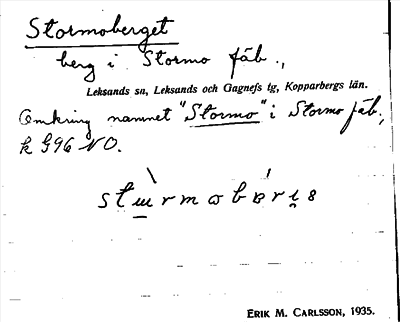 Stormoberget
berg i Stormo fäb.,
Leksands sn, Leksands och Gagnefs tg, Kopparbergs län.
Omkring namnet "Stormo" i Stormo fäb.,
k G96 NO.
stɯrmωbɐrɩ̨s
ERIK M. CARLSSON, 1935.